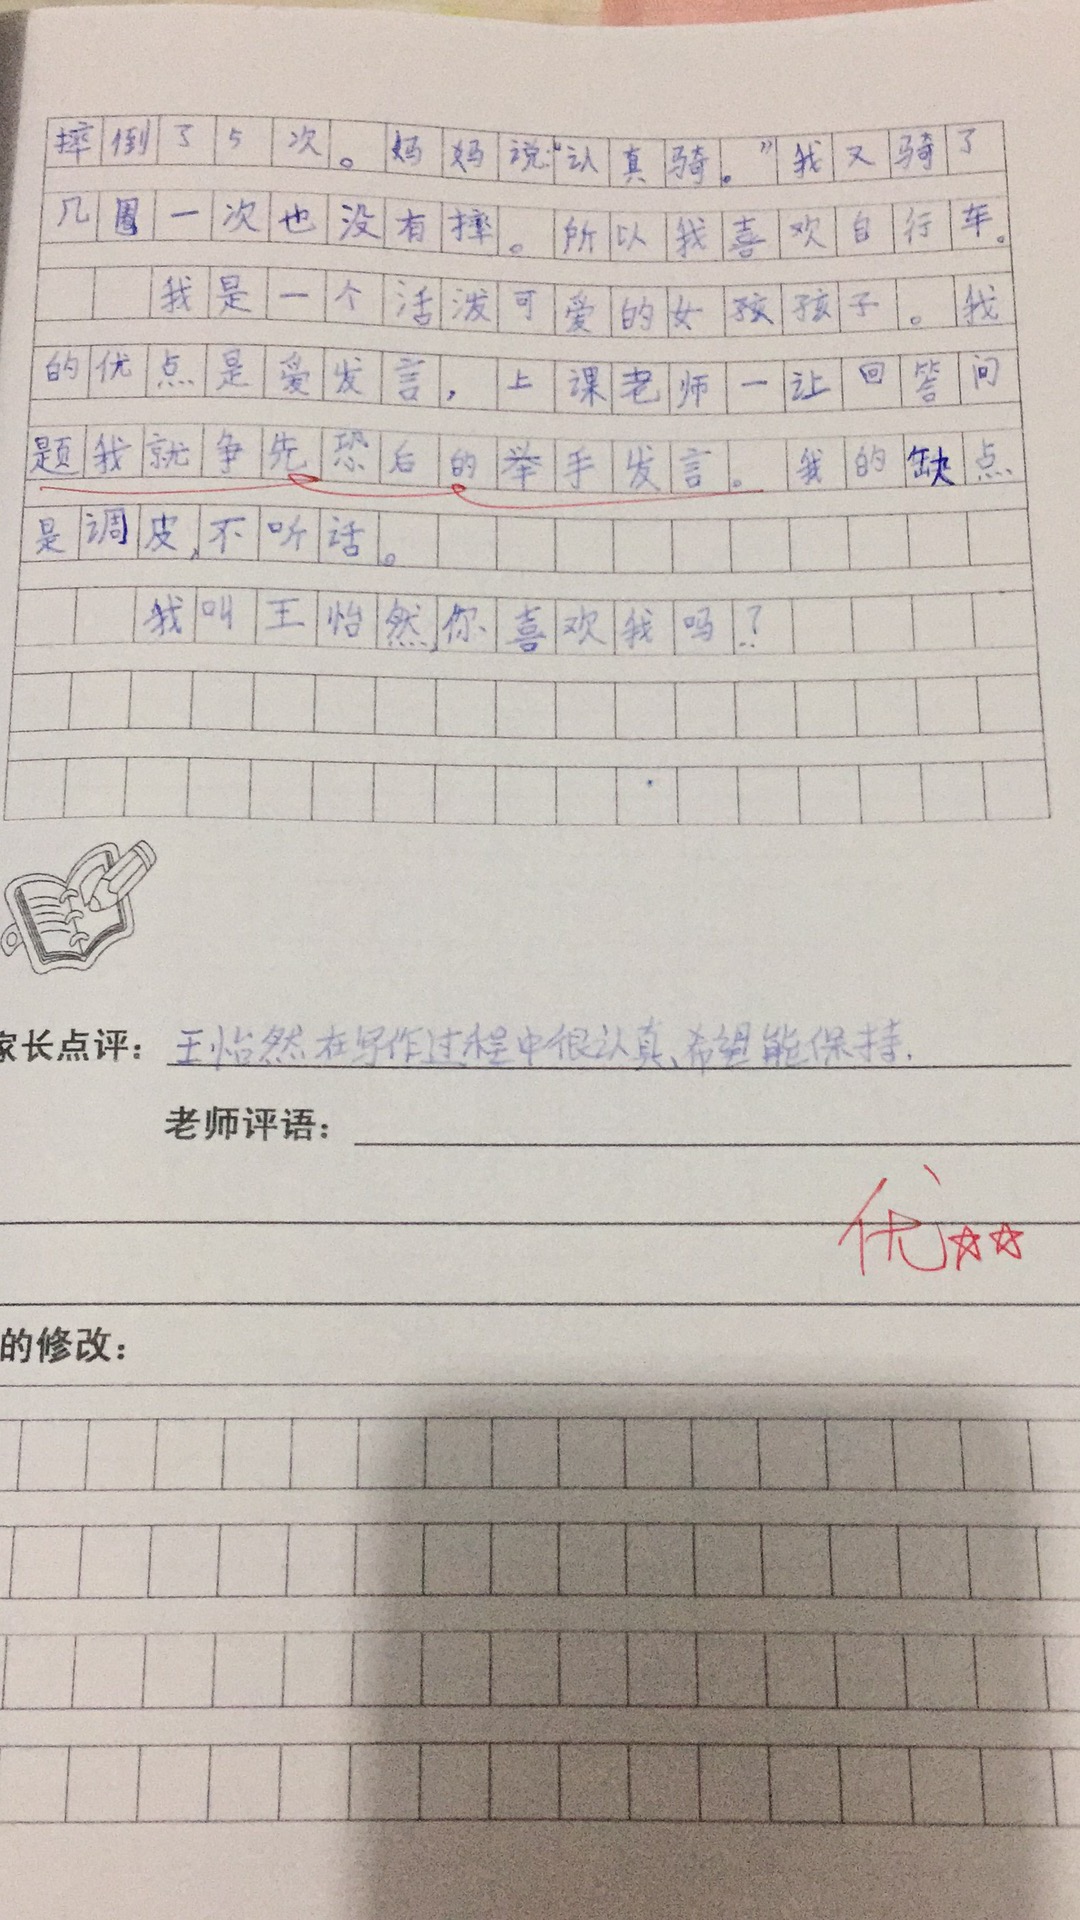 摔倒了5次。妈妈说:“认真骑。”我又骑了
几圈一次也没有摔。所以我喜欢自行车。
我是一个活泼可爱的女孩孩子。我
的优点是爱发言,上课老师一让回答问
题我就争先恐后的举手发言。我的缺点
是调皮,不听话。
我叫王怡然,你喜欢我吗?
家长点评:王怡然在写作过程中很认真、希望能保持.
老师评语:
优☆☆
的修改: